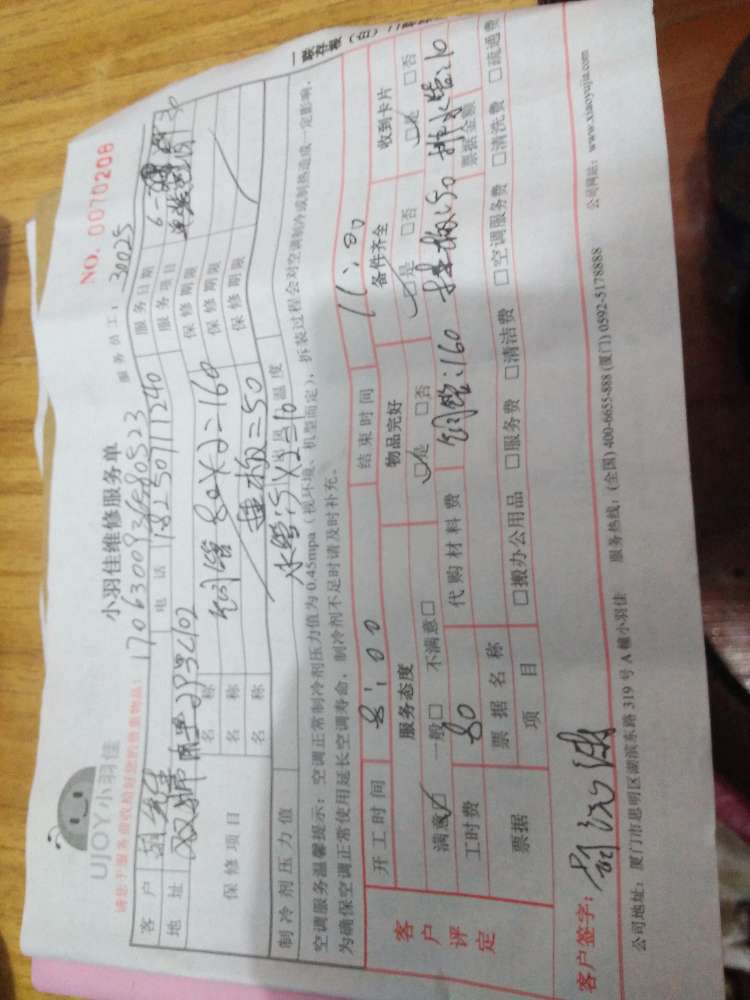 一联存根（白）
UJOY小羽佳
小羽佳维修服务单
NO. 0070208
请您于服务前收拾好您的贵重物品!
服务员工: 30025
客户
电话 18250711240
服务日期 6-
地址
服务项目
保修项目
名称 铜管 80X2=160
保修期限
名称
=50
保修期限
名称
保修期限
制冷剂压力值
水管:5X2=10
温度
空调服务温馨提示：空调正常制冷剂压力值为0.45mpa（视环境、机型而定），拆装过程会对空调制冷或制热造成一定影响，
为确保空调正常使用延长空调寿命，制冷剂不足时请及时补充。
客户评定
开工时间 8:00
结束时间 11:00
服务态度
物品完好
备件齐全
收到卡片
满意□ 一般□ 不满意□
□是 □否
□是 □否
□是 □否
工时费 80
代购材料费 铜管:160 :50 排水管:10
票据
票据名称
票据金额
项目
□搬办公用品 □服务费 □清洁费 □空调服务费 □清洗费 □疏通费
客户签字:
公司地址: 厦门市思明区湖滨东路319号A幢小羽佳 服务热线: (全国) 400-6655-888 (厦门) 0592-5178888 公司网站: www.xiaoyujia.com